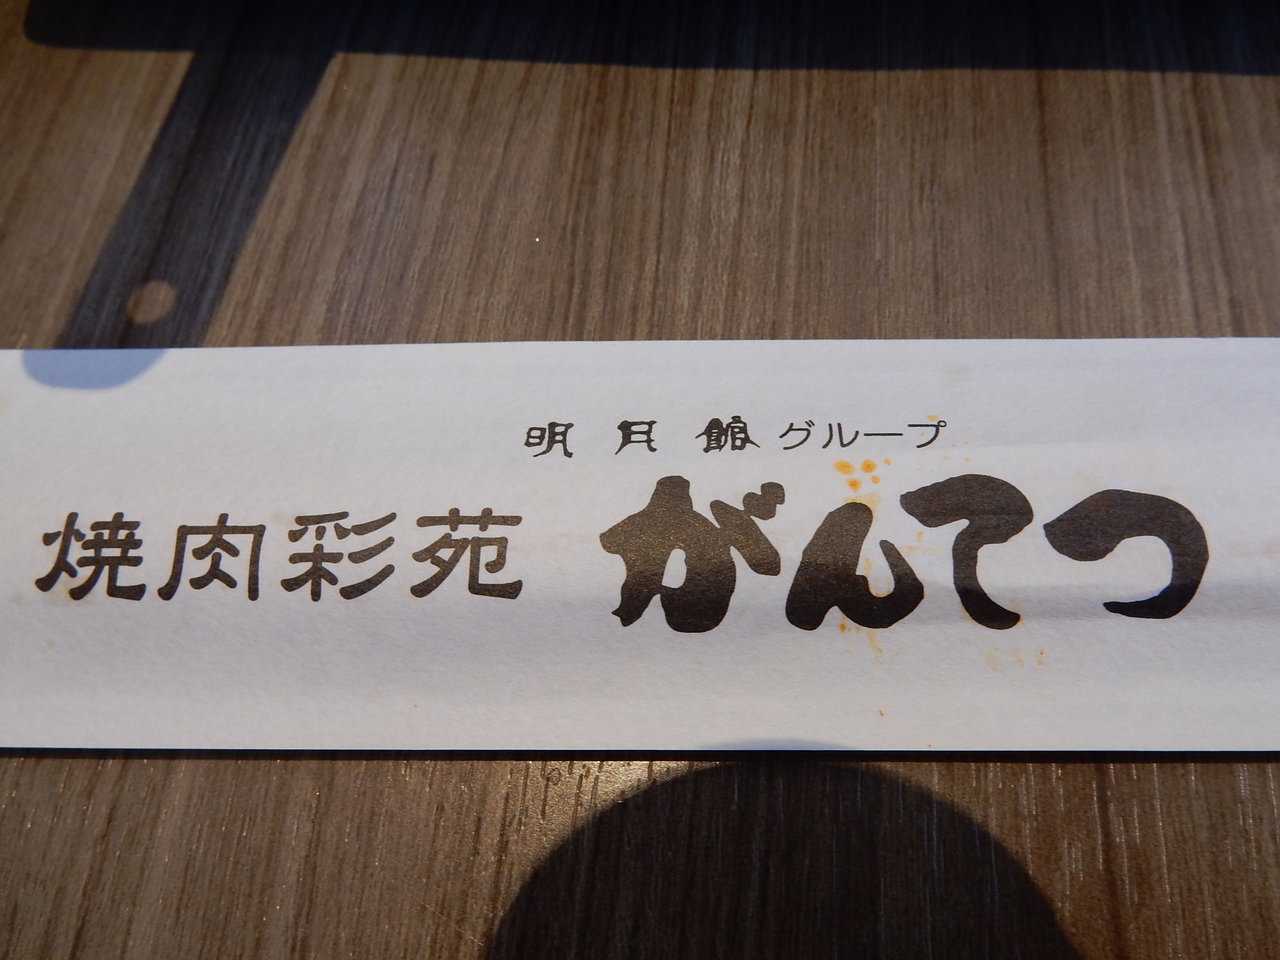 明月館グループ
焼肉彩苑 がんてつ